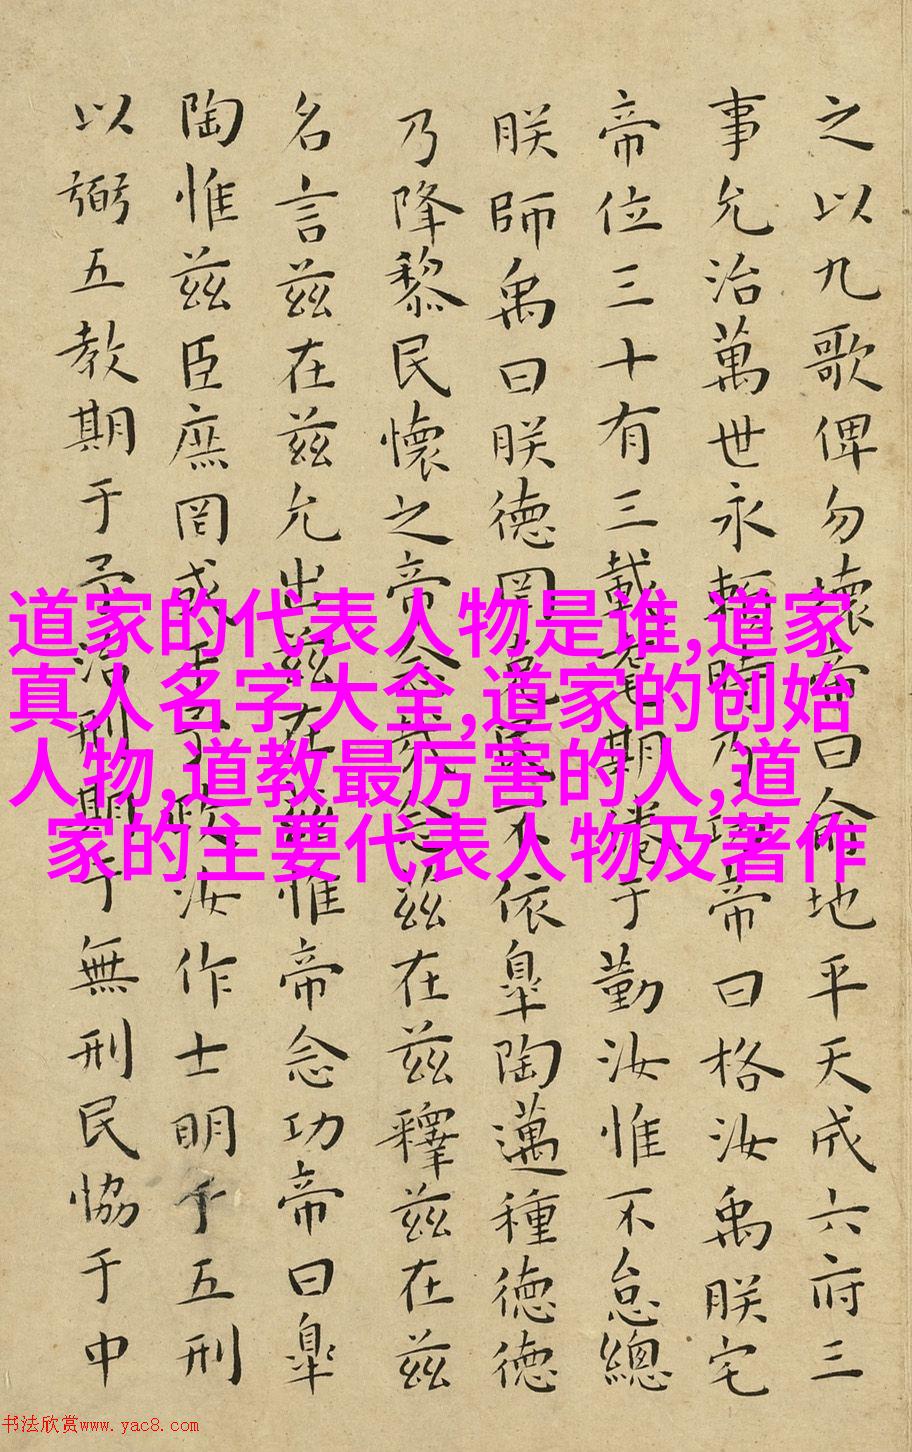 之以九歌俾勿壞帝曰俞地平天成六府三
事允治萬世永賴時乃功帝曰格汝禹朕宅
帝位三十有三載耄期倦于勤汝惟不怠總
朕師禹曰朕德罔克民不依皐陶邁種德德
乃降黎民懷之帝念哉念兹在兹釋兹在兹
名言兹在兹允出兹在兹惟帝念功帝曰皐
陶惟兹臣庶罔或干予政汝作士明于五刑
以弼五教期于予治刑期于無刑民協于中
道家的代表人物是谁,道家
真人名字大全,道家的创始
人物,道教最厉害的人,道
家的主要代表人物及著作
书法欣赏www.yac8.com